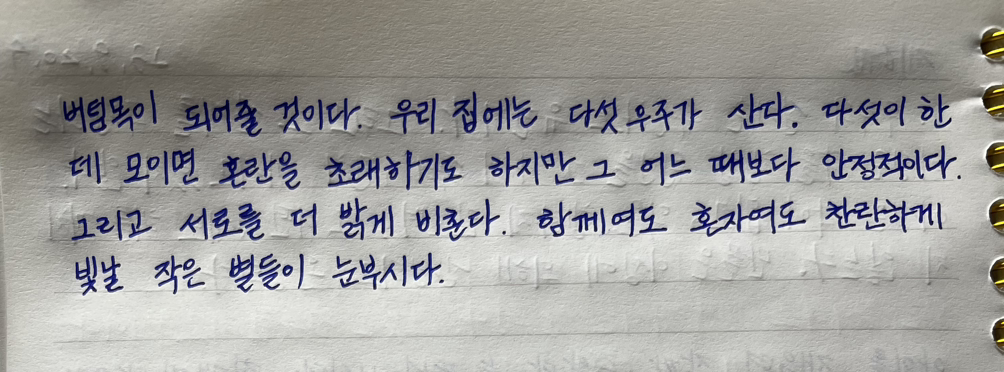 버팀목이 되어줄 것이다. 우리 집에는 다섯 우주가 산다. 다섯이 한
데 모이면 혼란을 초래하기도 하지만 그 어느 때보다 안정적이다.
그리고 서로를 더 밝게 비춘다. 함께여도 혼자여도 찬란하게
빛날 작은 별들이 눈부시다.